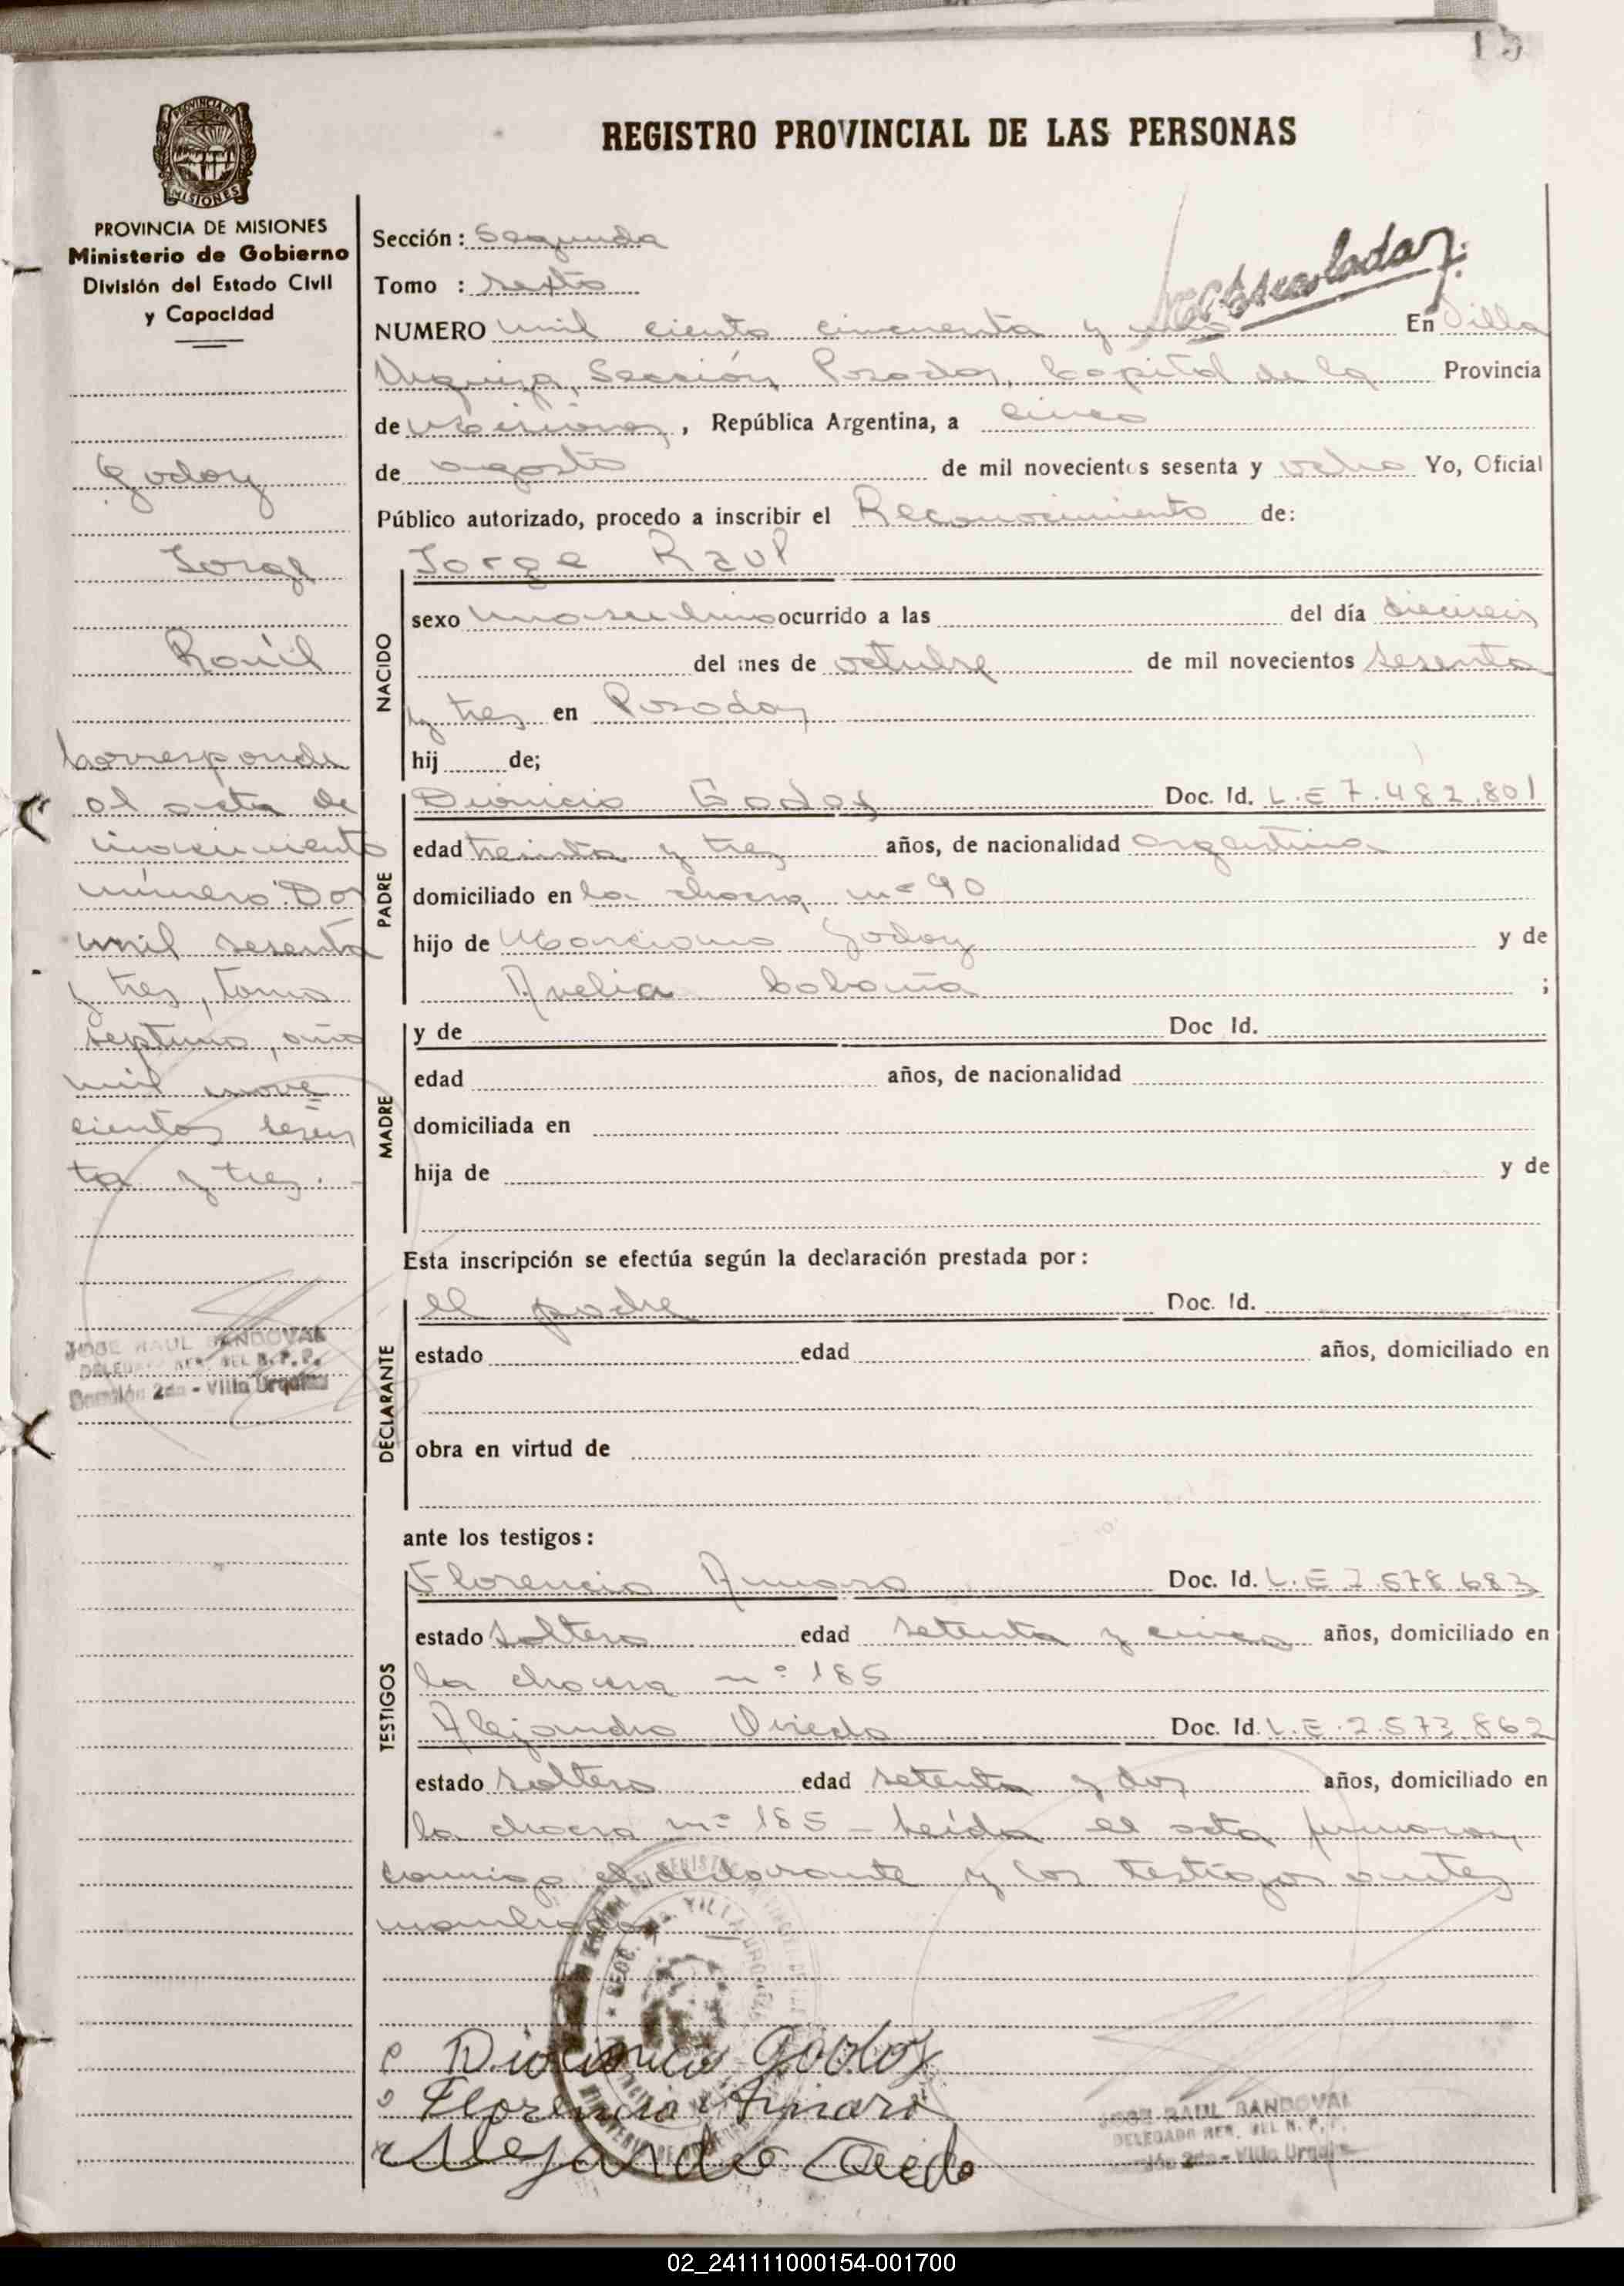 15
PROVINCIA DE
MISIONES
REGISTRO PROVINCIAL DE LAS PERSONAS
PROVINCIA DE MISIONES
Ministerio de Gobierno
División del Estado Civil
y Capacidad
Godoy
Jorge
Raúl
Corresponde
al acta de
nacimiento
número: Dos
mil sesenta
y tres, tomo
septimo, año
mil nove
cientos sesen
ta y tres.
JOSE RAUL SANDOVAL
DELEGADO DEL R.P.P.
Sección 2da - Villa Urquiza
Sección: Segunda
Tomo : sexto
NUMERO mil ciento cincuenta y uno En Villa
Urquiza, Sección Posadas, Capital de la Provincia
de Misiones, República Argentina, a cinco
de agosto de mil novecientos sesenta y ocho Yo, Oficial
Público autorizado, procedo a inscribir el Reconocimiento de:
NACIDO
Jorge Raul
sexo masculino ocurrido a las del día dieciseis
del mes de octubre de mil novecientos sesenta
y tres en Posadas
hij de;
PADRE
Dionicio Godoy Doc. Id. L.E 7.482.801
edad treinta y tres años, de nacionalidad argentina
domiciliado en la chacra nº 90
hijo de Marciano Godoy y de
Avelia ;
MADRE
y de Doc Id.
edad años, de nacionalidad
domiciliada en
hija de y de
Esta inscripción se efectúa según la declaración prestada por:
DECLARANTE
el padre Doc. Id.
estado edad años, domiciliado en
obra en virtud de
ante los testigos:
TESTIGOS
Florencio Doc. Id. L.E 7.578.683
estado soltero edad setenta y cinco años, domiciliado en
la chacra nº 185
Alejandro Oviedo Doc. Id. L.E. 2.573.862
estado soltero edad setenta y dos años, domiciliado en
la chacra nº 185 - Leída el acta firmaron
conmigo el declarante y los testigos antes
nombrados
Dionicio Godoy
Florencio
Alejandro Oviedo
JOSE RAUL SANDOVAL
DELEGADO
2da - Villa Urquiza
02_241111000154-001700